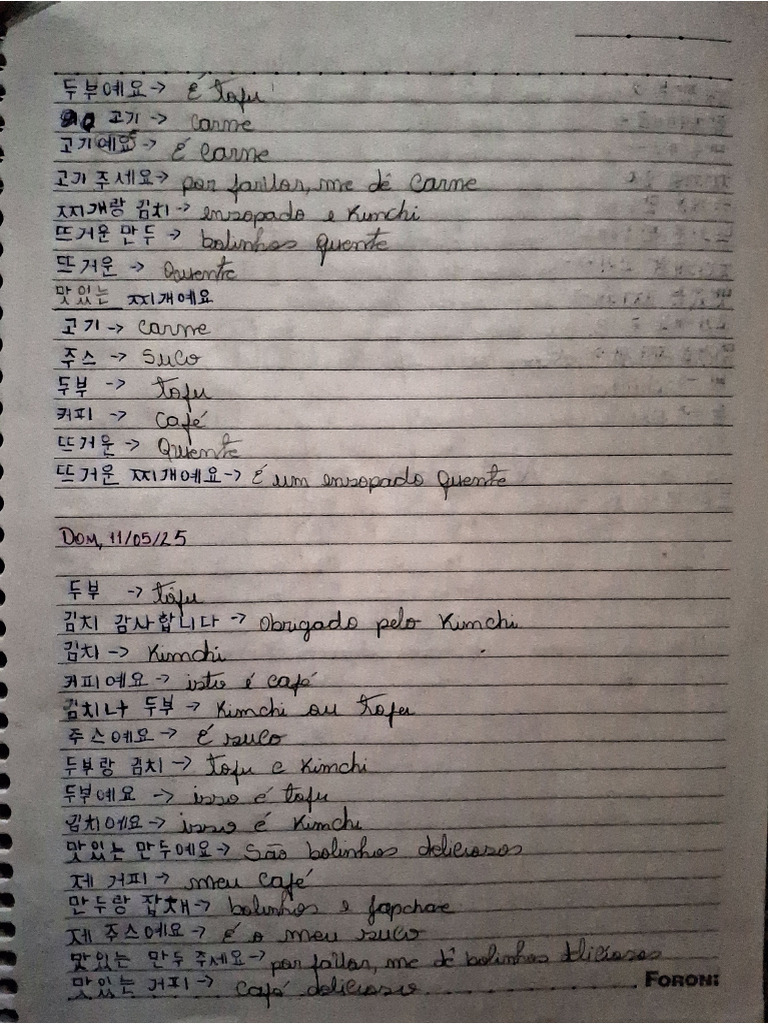 두부예요 → É tofu
고기 → carne
고기예요 → É carne
고기 주세요 → por favor, me dê carne
찌개랑 김치 → ensopado e Kimchi
뜨거운 만두 → bolinhos quente
뜨거운 → Quente
맛있는 찌개예요
고기 → carne
주스 → suco
두부 → tofu
커피 → café
뜨거운 → Quente
뜨거운 찌개예요 → É um ensopado quente
Dom, 11/05/25
두부 → tofu
김치 감사합니다 → obrigado pelo Kimchi
김치 → Kimchi
커피예요 → isto é café
김치나 두부 → Kimchi ou tofu
주스예요 → É suco
두부랑 김치 → tofu e Kimchi
두부예요 → isso é tofu
김치예요 → isso é Kimchi
맛있는 만두예요 → São bolinhos deliciosos
제 커피 → meu café
만두랑 잡채 → bolinhos e japchae
제 주스예요 → é o meu suco
맛있는 만두 주세요 → por favor, me dê bolinhos deliciosos
맛있는 커피 → café delicioso
FORONI